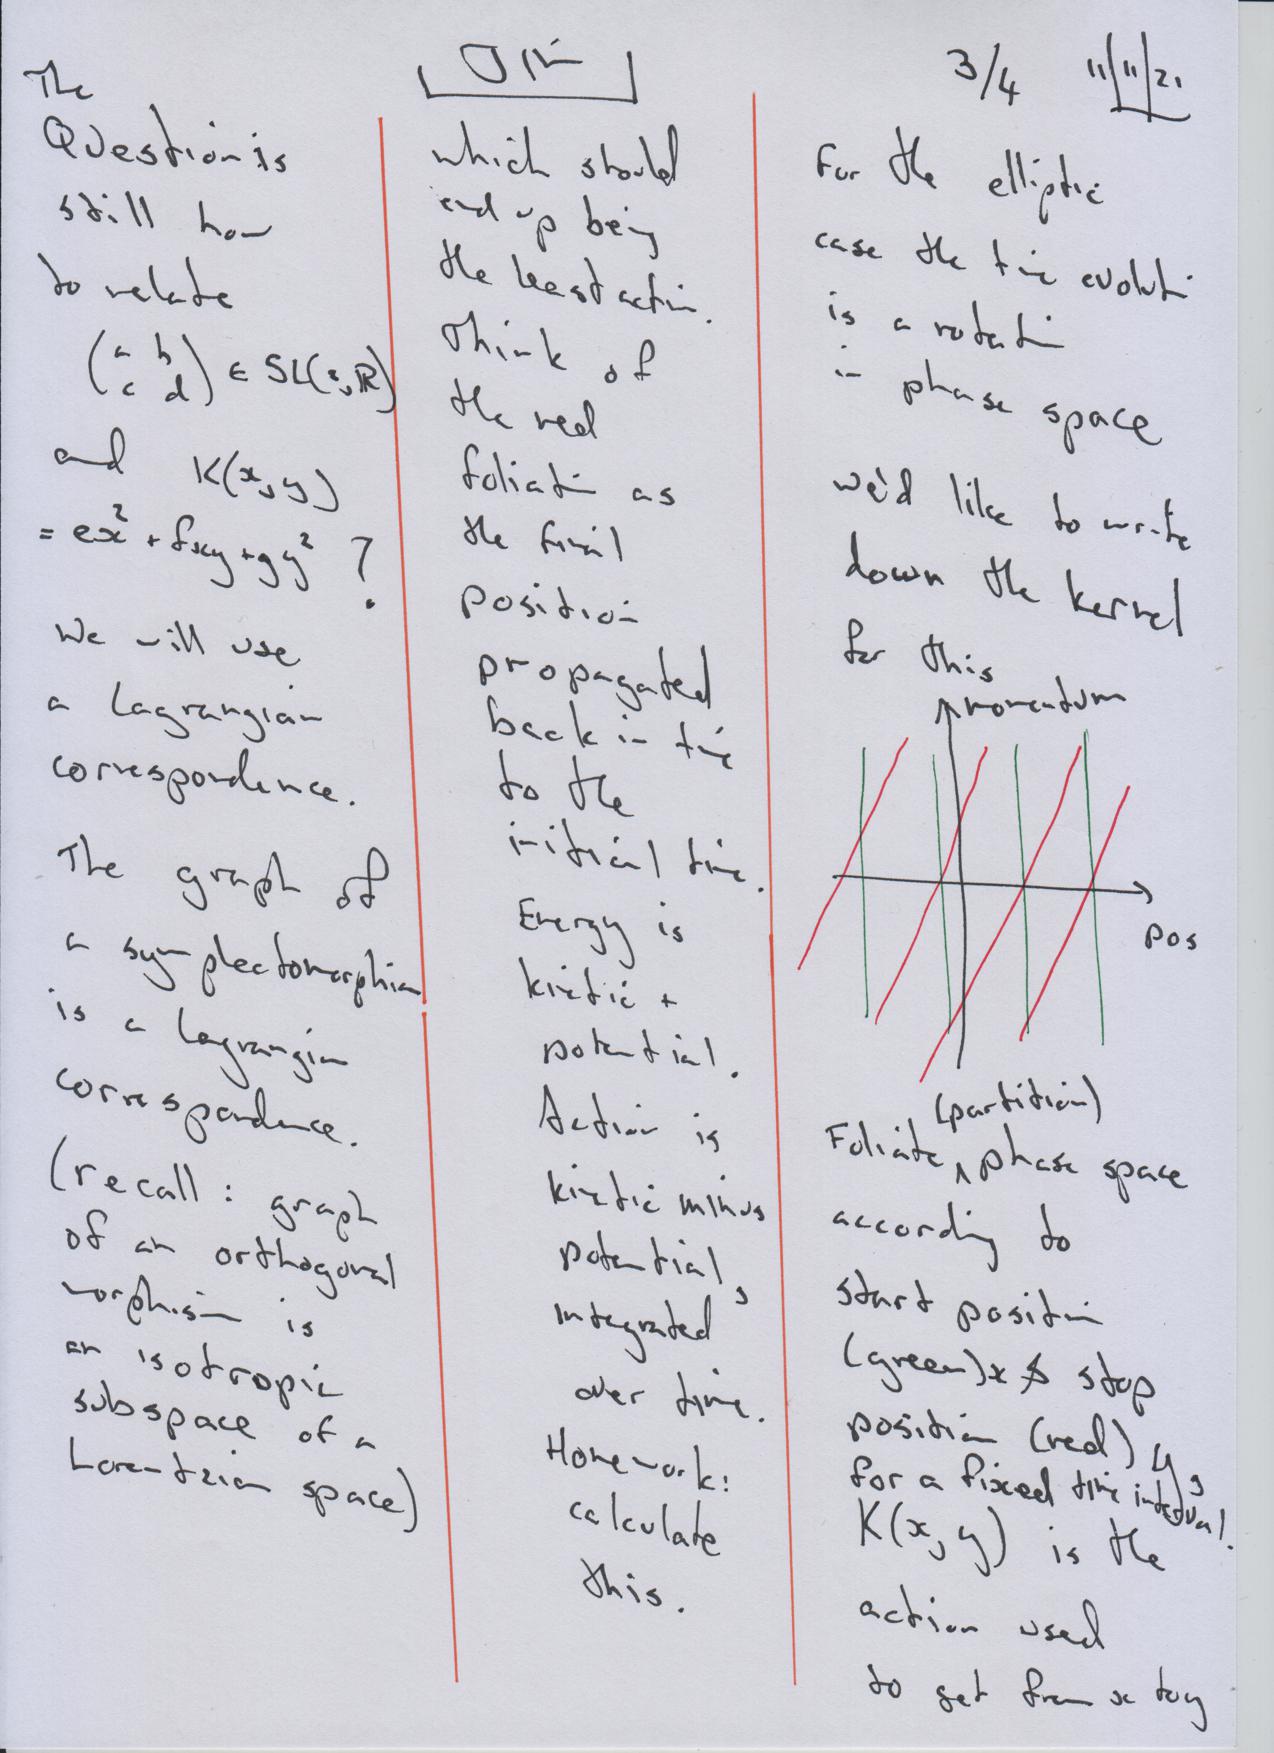 3/4 11/11/21
The
Question is
still how
to relate
(a b
c d) ∈ SL(2, ℝ)
and K(x, y)
= ex² + fxy + gy² ?
We will use
a Lagrangian
correspondence.
The graph of
a symplectomorphism
is a Lagrangian
correspondence.
(recall: graph
of an orthogonal
morphism is
an isotropic
subspace of a
Lorentzian space)
which should
end up being
the least action.
Think of
the red
foliation as
the final
position
propagated
back in time
to the
initial time.
Energy is
kinetic +
potential.
Action is
kinetic minus
potential,
integrated
over time.
Homework:
calculate
this.
For the elliptic
case the time evolution
is a rotation
in phase space
we'd like to write
down the kernel
for this
momentum
pos
(partition)
Foliate ^ phase space
according to
start position
(green) x & stop
position (red) y,
for a fixed time interval.
K(x, y) is the
action used
to get from x to y